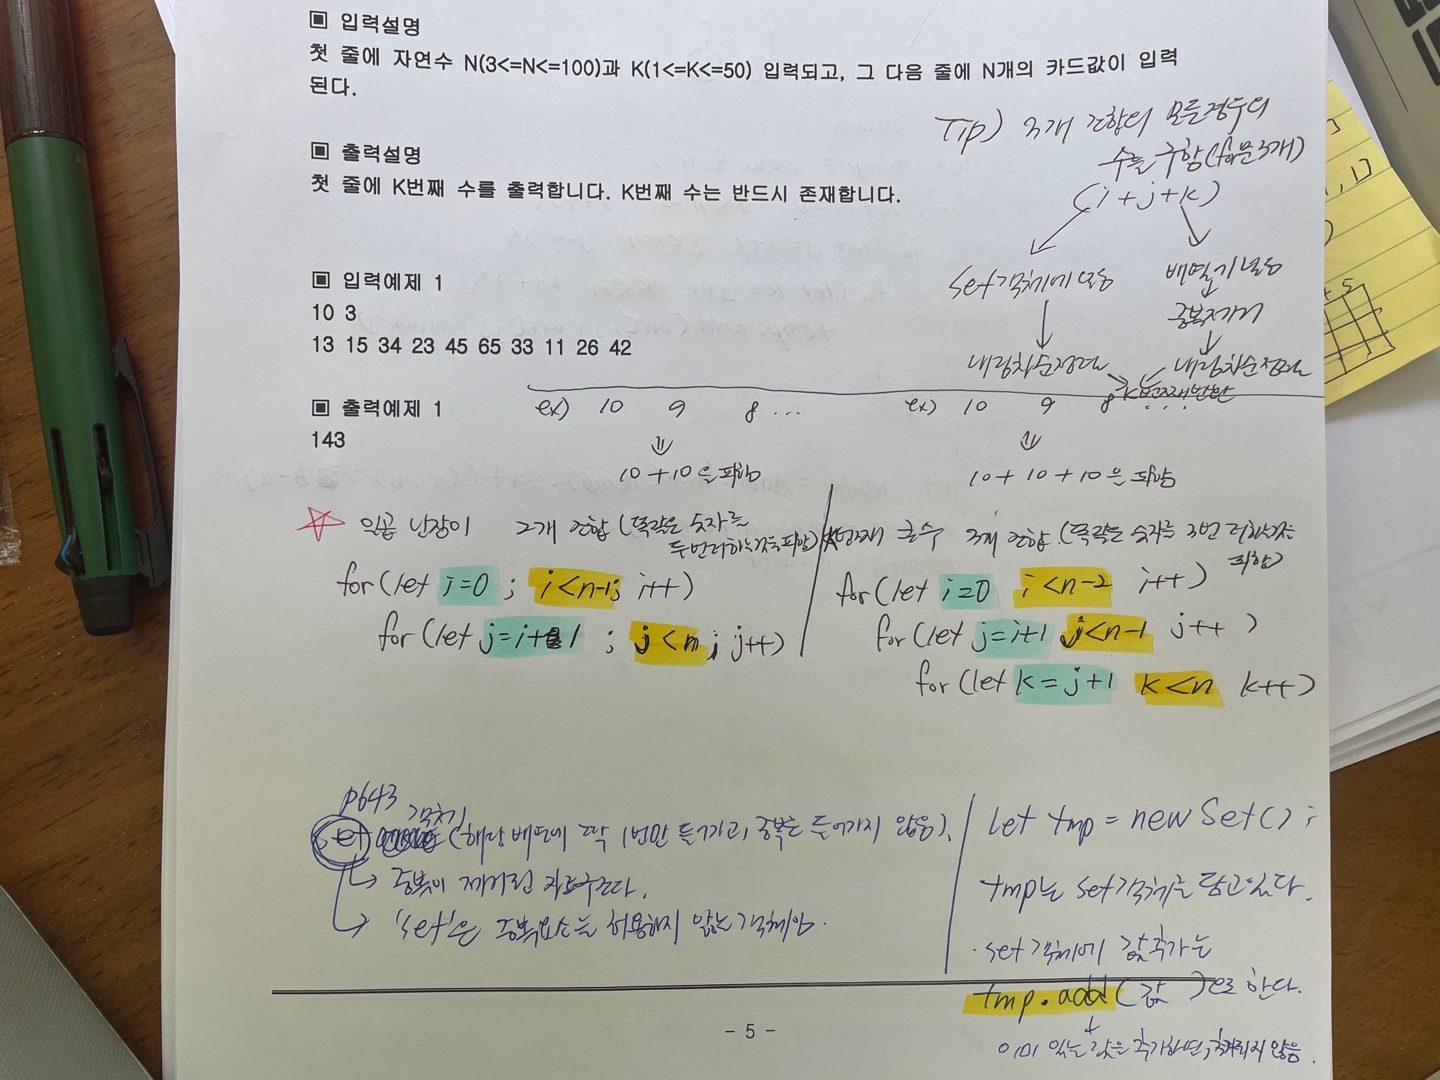 ▣ 입력설명
첫 줄에 자연수 N(3<=N<=100)과 K(1<=K<=50) 입력되고, 그 다음 줄에 N개의 카드값이 입력
된다.
▣ 출력설명
첫 줄에 K번째 수를 출력합니다. K번째 수는 반드시 존재합니다.
Tip) 3개 조합의 모든경우의
수를 구함(for문3개)
(i+j+k)
set객체에 넣음
배열에 넣음
중복제거
내림차순정렬
내림차순정렬
K번째반환
▣ 입력예제 1
10 3
13 15 34 23 45 65 33 11 26 42
▣ 출력예제 1
143
ex) 10 9 8 ...
10+10은 피함
ex) 10 9 8 ...
10+10+10은 피함
☆ 일곱 난장이 2개 조합(똑같은 숫자를
두번더하는것을피함)
for(let i=0 ; i<n-1; i++)
for(let j=i+1 ; j<n; j++)
K번째 큰수 3개 조합(똑같은 숫자를 3번 더하는것을
피함)
for(let i=0 i<n-2 i++)
for(let j=i+1 j<n-1 j++)
for(let k=j+1 k<n k++)
p643
set 객체 (해당 배열에 딱 1번만 들어가고, 중복은 들어가지 않음).
↳ 중복이 제거된 자료구조다.
↳ 'set'은 중복요소를 허용하지 않는 객체임.
let tmp = new Set();
tmp는 set객체를 담고있다.
· set객체에 값추가는
tmp.add(값)으로 한다.
이미 있는 값은 추가하면, 추가되지 않음.
- 5 -